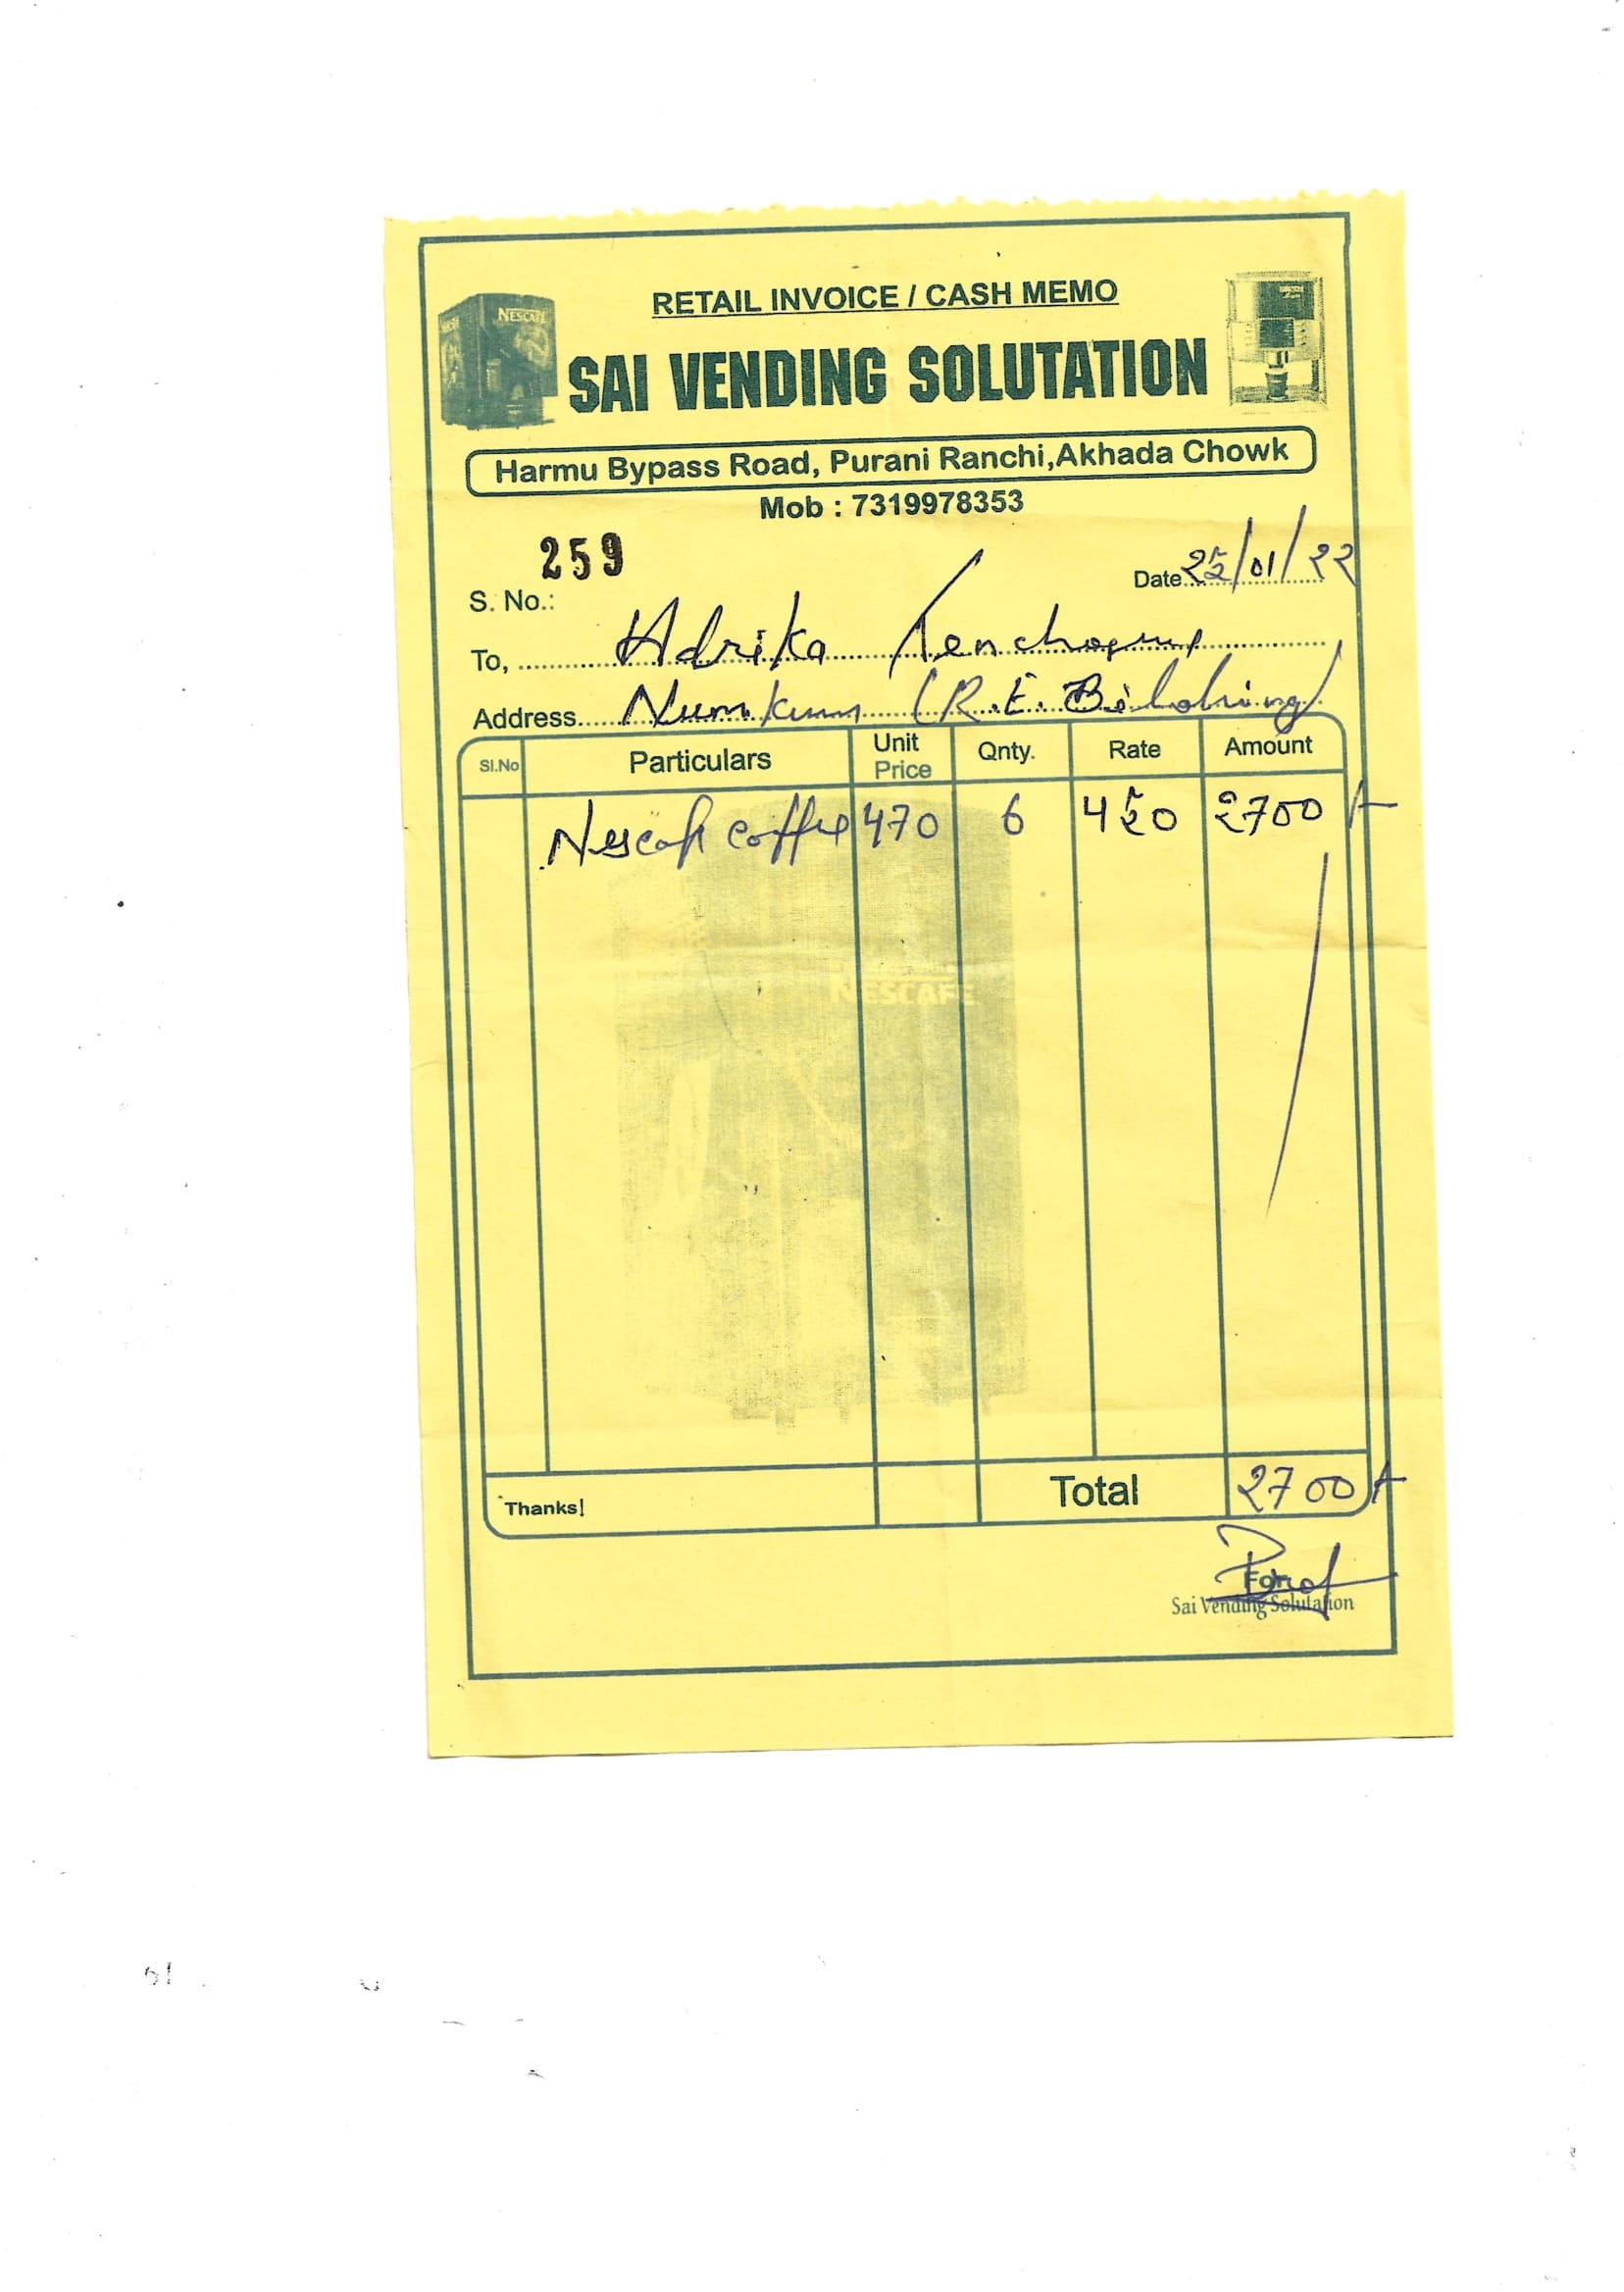 RETAIL INVOICE / CASH MEMO
NESCAFE
SAI VENDING SOLUTATION
Harmu Bypass Road, Purani Ranchi,Akhada Chowk
Mob : 7319978353
259
S. No.:
Date 25/01/22
To, Adrika
Address Numkum (R.E. Bilding)
Sl.No Particulars Unit Price Qnty. Rate Amount
Nescafe coffee 470 6 450 2700/-
NESCAFE
Thanks! Total 2700/-
For
Sai Vending Solutation